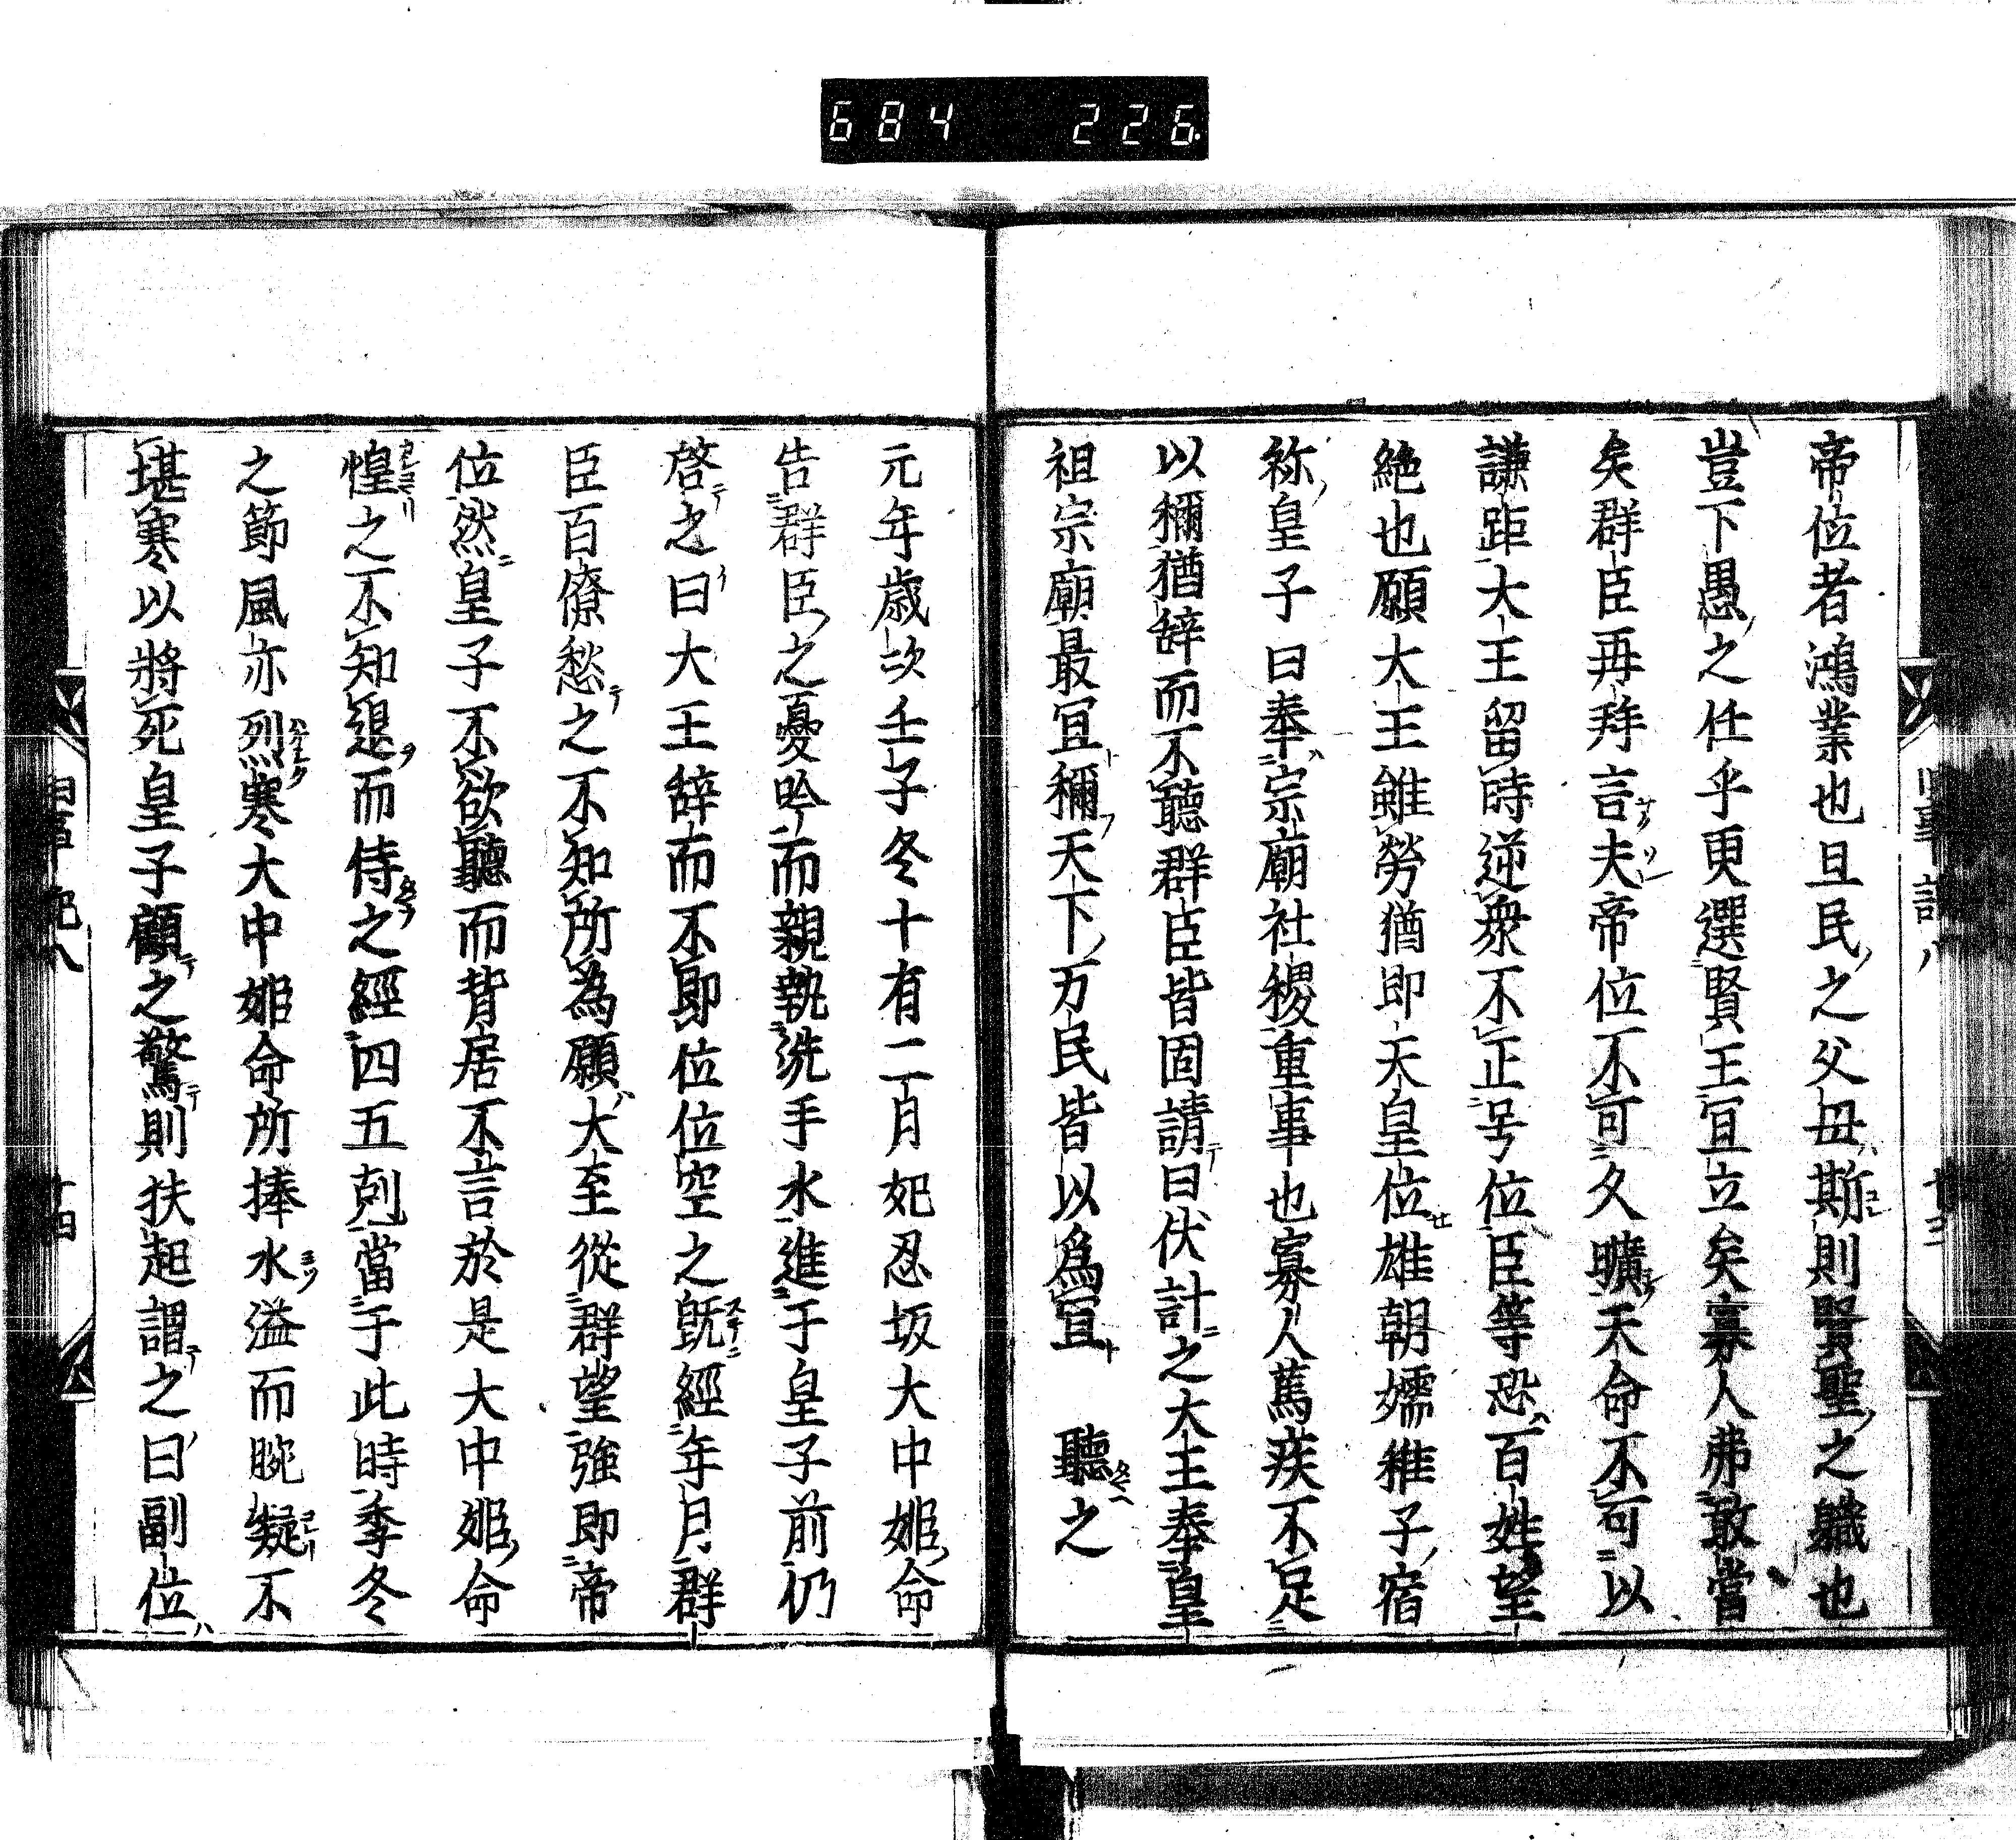 684 226
帝位者鴻業也且民之父母斯則賢聖之軄也
豈下愚之任乎更選賢王冝立矣寡人弗敢當
矣群臣再拜言夫帝位不可久曠天命不可以
謙距大王留時逆衆不正号位臣等恐百姓望
絶也願大王雖勞猶即天皇位雄朝嬬稚子宿
祢皇子曰奉宗廟社稷重事也寡人篤疾不足
以稱猶辞而不聴群臣皆固請曰伏計之大王奉皇
祖宗廟最冝稱天下万民皆以爲冝 聴之
元年歳次壬子冬十有二月妃忍坂大中姫命
告群臣之憂吟而親執洗手水進于皇子前仍
啓之曰大王辞而不即位位空之既經年月群
臣百僚愁之不知所為願大至從群望強即帝
位然皇子不欲聴而背居不言於是大中姫命
惶之不知退而侍之經四五剋當于此時季冬
之節風亦烈寒大中姫命所捧水溢而腕凝不
堪寒以將死皇子顧之驚則扶起謂之曰副位